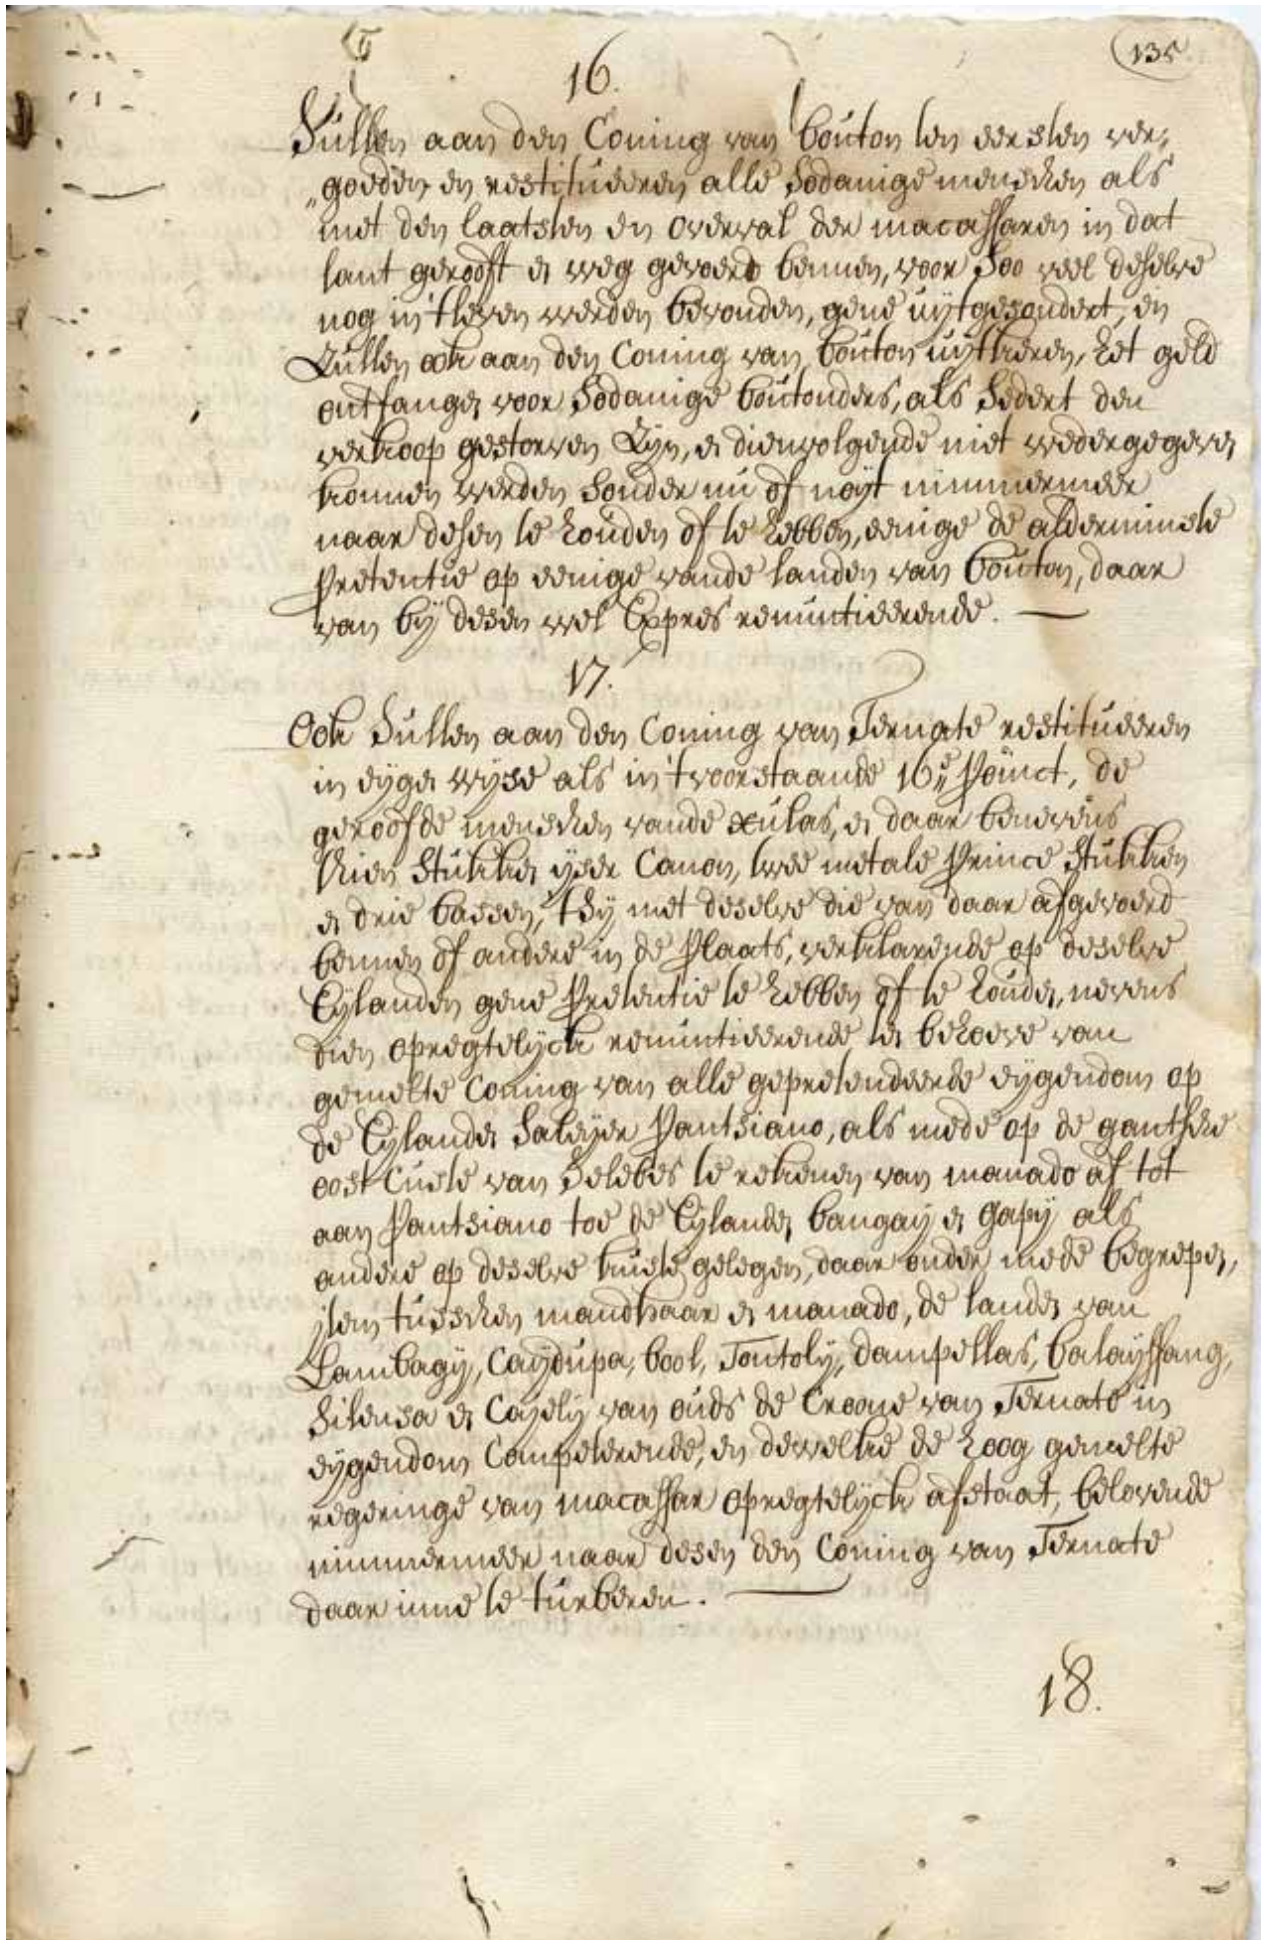 135
16.
Sullen aan den Coning van bouton ten eersten ver„
„goeden, en restitueeren alle Sodanige menschen als
met den laatsten en overval der macassaren in dat
lant gerooft en weg gevoerd bennen, voor Soo veel deselve
nog in 't leven werden bevonden, gene uytgesondert, en
Zullen ook aan den Coning van bouton uytkeren, het geld
ontfangen voor Sodanige boutonders, als Sedert den
verkoop gestorven Zyn, en dienvolgende niet wedergegeven
konnen werden Sonder nu of noyt nimmermeer
naar desen te houden of te hebben, eenige de alderminste
Pretentie op eenige vande landen van bouton, daar
van by desen wel Expres renuntieerende.
17.
Ook Sullen aan den Coning van Ternate restitueeren
in eygen wyse als in 't voorstaande 16„e Poinct, de
geroofde menschen vande xulas, en daar benevens
thien Stukken yser Canon, twee metale Prince Stukken
en drie bassen, 't sy met deselve die van daar afgevoerd
bennen of andere in de Plaats, verklarende op deselve
Eylanden gene Pretentie te hebben of te houden, nevens
dien opregtelyck renuntieerende ten behoeve van
gemelte Coning van alle gepretendeerde eygendom op
de Eylanden Saleyer Pantsiano, als mede op de gantsche
oost Custe van Selebes te rekenen van manado af tot
aan Pantsiano toe de Eylanden bangay en gapy als
andere op deselve kuste gelegen, daar onder mede begrepen,
item tusschen mandhaar en manado, de landen van
Lambagy, Caydupa, bool, Tontoly, dampellas, balayssang,
Silensa en Cayely van ouds de Croone van Ternate in
eygendom Competerende, en dewelke de hoog gemelte
regeringe van macassar opregtelyck afstaat, belovende
nimmermeer naar desen den Coning van Ternate
daar inne te turberen.
18.